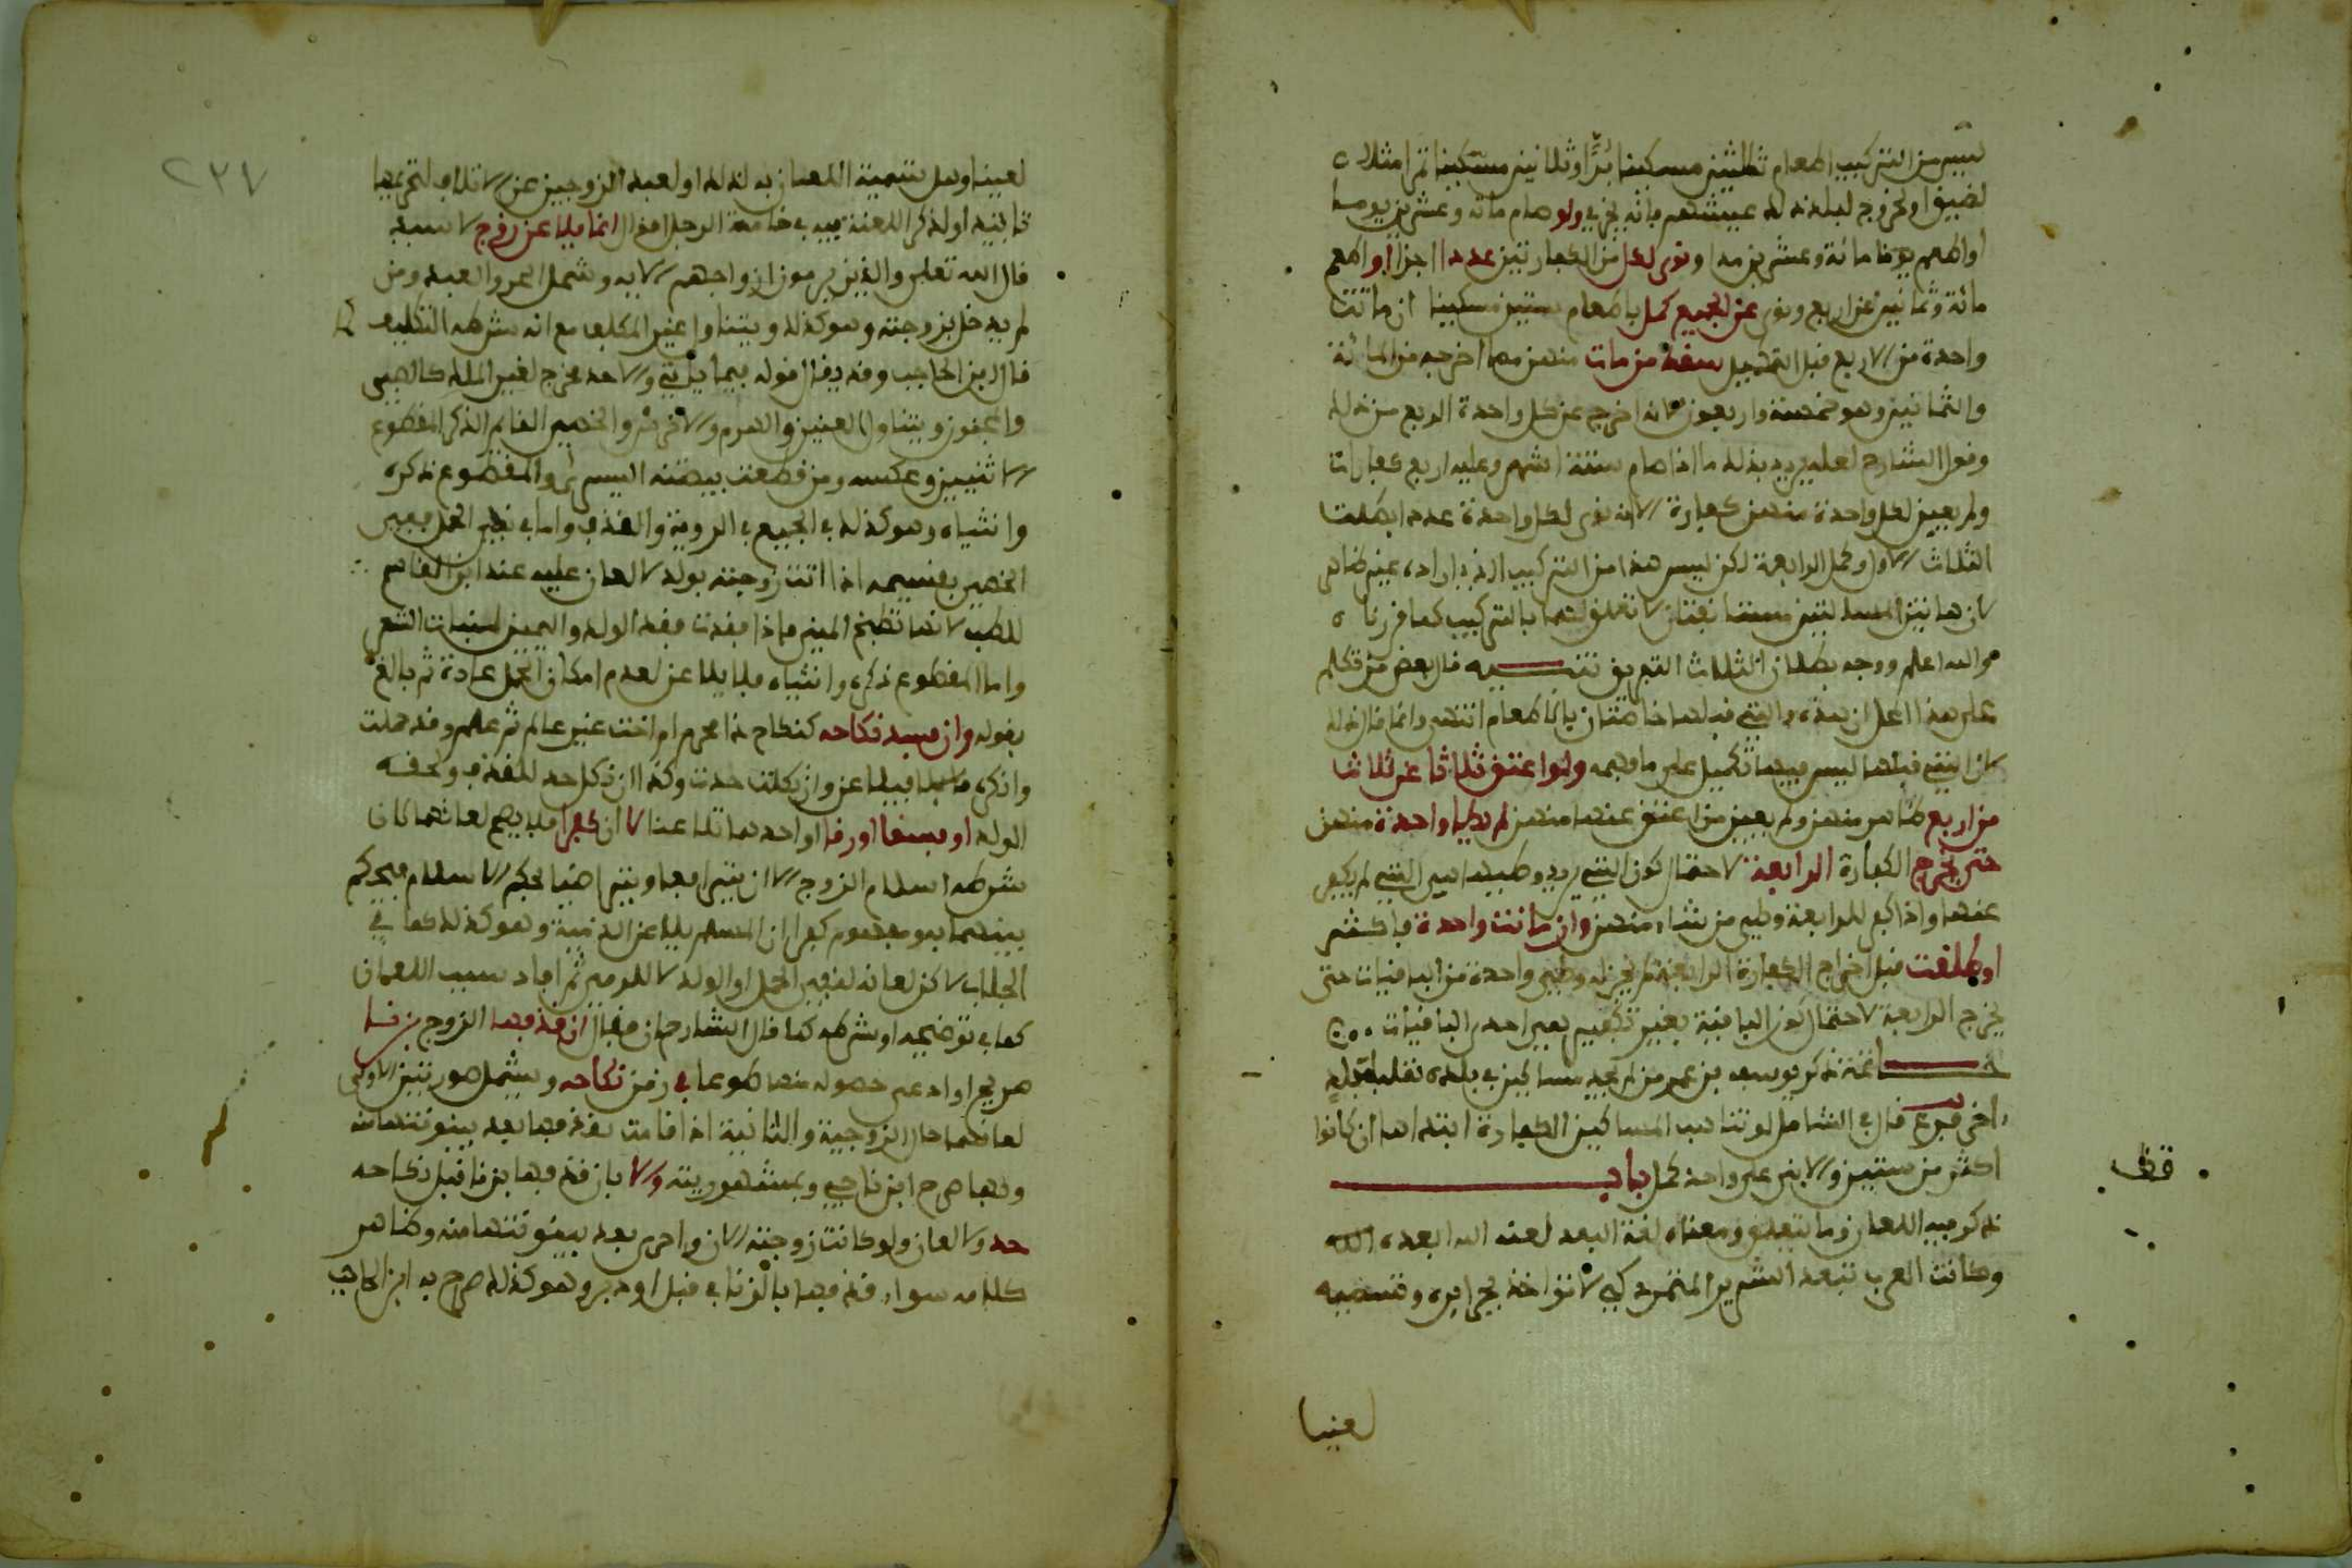 ليس من التركيب اطعام ثلاثين مسكينا برا وثلاثين مسكينا تمرا مثلا
لضيق او لخروج لبلد ذلك عيشهم فانه يجزي ولو صام مائة وعشرين يوما
او اطعم يوما مائة وعشرين مدا ونوى لكل من الكفارتين عددا اجزا او اطعم
مائة وثمانين عن اربع ونوى عن الجميع كمل باطعام ستين مسكينا ان ماتت
واحدة من الاربع قبل التكميل سقط من مات منهن مما اخرجه من المائة
والثمانين وهو خمسة واربعون لانه اخرج عن كل واحدة الربع من ذلك
وقول الشارح لعله يريد بذلك ما اذا صام ستة اشهر وعليه اربع كفارات
ولم يعين لكل واحدة منهن كفارة لانه نوى لكل واحدة عددا بطلت
الثلاث الاول وكمل الرابعة لكن ليس هذا من التركيب الذي اراده غير ظاهر
لان هاتين المسئلتين مستانفتان لا تعلق لهما بالتركيب كما قررنا
والله اعلم ووجه بطلان الثلاث التفريق تنبيه قال بعض من تكلم
على هذا المحل ان هذه والتي قبلها خاصتان بالاطعام انتهى وانما قال ذلك
لان التي قبلها ليس فيها تكميل على ما فهمه ولو اعتق ثلاثا عن ثلاث
من اربع ظاهر منهن ولم يعين من اعتق عنها منهن لم يطا واحدة منهن
حتى يخرج الكفارة الرابعة لاحتمال كون التي يريد وطيها هي التي لم يكفر
عنها واذا كفر للرابعة وطي من شاء منهن وان ماتت واحدة فاكثر
او طلقت قبل اخراج الكفارة الرابعة لم يجز له وطي واحدة من الباقيات حتى
يخرج الرابعة لاحتمال كون الباقية بغير تكفير هي احدى الباقيات
خاتمة ذكر يوسف بن عمر من لم يجد مساكين في بلده نقلها لبلد
اخرى فرع قال في الشامل لو تناهب المساكين الكفارة ابتداها ان كانوا
اكثر من ستين والا بنى على واحد كمل باب
ذكر فيه اللعان وما يتعلق به ومعناه لغة البعد لعنه الله ابعده الله
وكانت العرب تبعد الشرير المتمرد كي لا تؤاخذ بجرايره وتسميه
لعينا
قف
٢٣٧
لعينا وهل تسمية اللعان به لذلك او لبعد الزوجين عن الاتلاف لتحريمها
تابيدا او لذكر اللعنة فيه في خامسة الرجل اقوال انما يلاعن زوج لا سيد
قال الله تعلى والذين يرمون ازواجهم الاية وشمل الحر والعبد ومن
لم يدخل بزوجته وهو كذلك ويتناول غير المكلف مع انه شرطه التكليف
قال ابن الحاجب وقد يقال قوله فيما ياتي والا حد مخرج لغير المكلف كالصبي
والمجنون ويتناول العنين والهرم والاخرس والخصي القايم الذكر المقطوع
الانثيين وعكسه ومن قطعت بيضته اليسرى والمقطوع ذكره
وانثياه وهو كذلك في الجميع في الروية والقذف واما في نفي الحمل ففي
الخصي بقسيمه اذا اتت زوجته بولد لا لعان عليه عند ابن القاسم
للطب لانها تطبخ المني فاذا فقدت فقد الولد واليمين لنبات الشعر
واما المقطوع ذكره وانثياه فلا يلاعن لعدم امكان الحمل عادة ثم بالغ
بقوله وان فسد نكاحه كنكاح ذا محرم او اخت غير عالم ثم علم وقد حملت
وانكره فيلاعن وان نكلت حدت وكذا ان نكل حد للقذف ولحق به
الولد او فسقا او رقا او احدهما تلاعنا لا ان كفرا فلا يصح لعانهما لان
شرطه اسلام الزوج الا ان يترافعا ويترضيا بحكم الاسلام فيحكم
بينهما ومفهوم كفرا ان المسلم يلاعن الذمية وهو كذلك كما في
الجلاب لاكن لعانه لنفي الحمل او الولد لا للرمي ثم افاد سبب اللعان
كما في توضيحه او شرطه كما قال الشارح ان فقال ان قذفها الزوج بزنا
صريح او ادعى حصوله منها طوعا في زمن نكاحه ويشمل صورتين الاولى
لعانهما حال الزوجية والثانية اذا قامت بقذفها بعد بينونتها منه
وبها صرح ابن ناجي وبمشهوريته والا بان قذفها بزنا قبل نكاحه
حد ولا لعان ولو كانت زوجته الان واحرى بعد بينونتها منه وظاهر
كلامه سواء قذفها بالزنا في قبل او دبر وهو كذلك صرح به ابن الحاجب